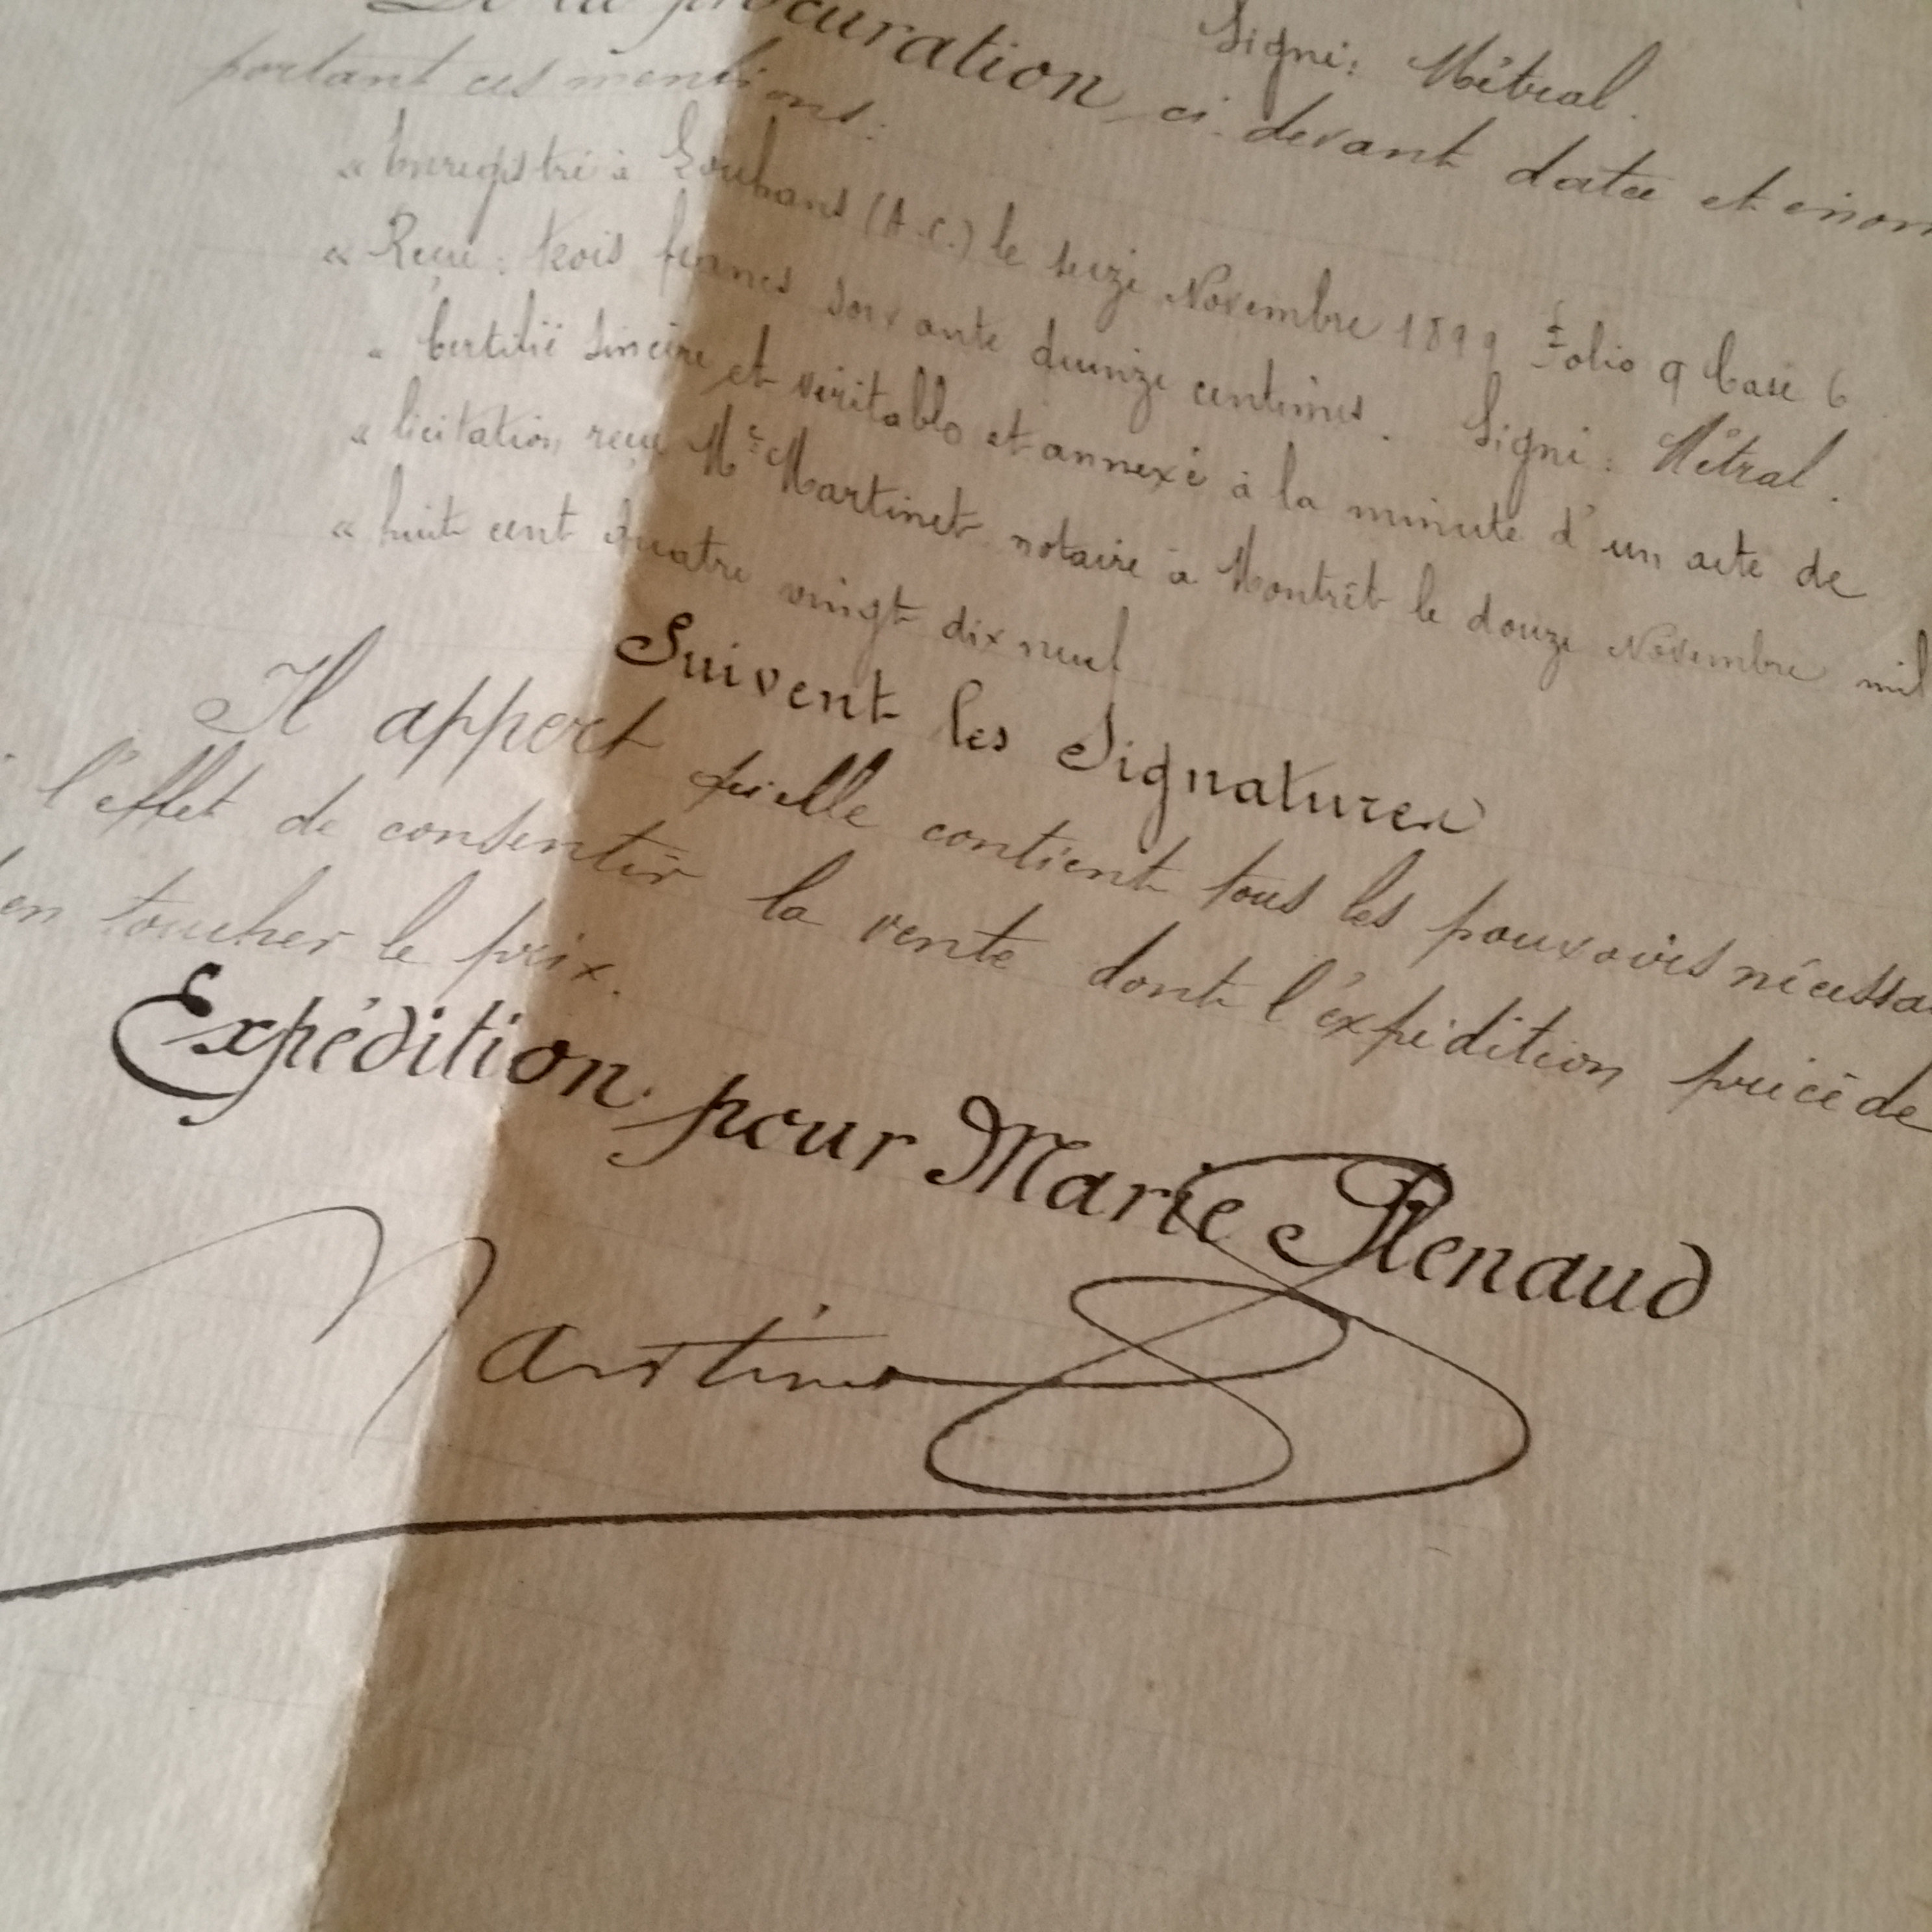 Signé: Métral.
De la procuration ci-devant datée et énon
portant ces mentions:
« Enregistré à Louhans (A.C.) le seize Novembre 1899 Folio 9 Case 6.
« Reçu: trois francs soixante quinze centimes. Signé: Métral.
« Certifié sincère et véritable et annexé à la minute d'un acte de
« licitation reçu Me Martinet notaire à Montrêt le douze Novembre mil
« huit cent quatre vingt dix neuf
Suivent les Signatures
Il appert qu'elle contient tous les pouvoirs nécessa
l'effet de consentir la vente dont l'expédition précède
en toucher le prix.
Expédition pour Marie Renaud
Martinet